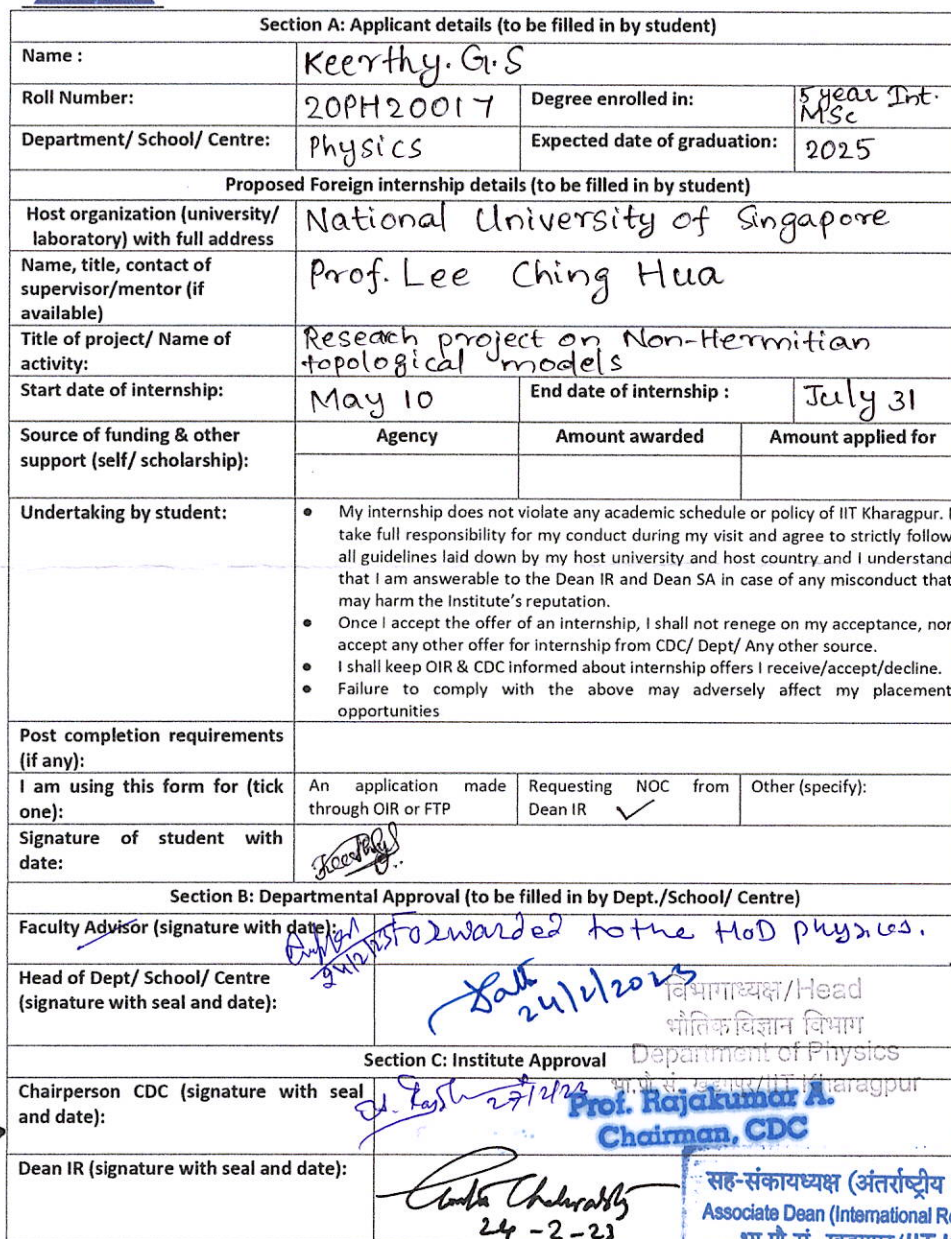 Section A: Applicant details (to be filled in by student)
Name :
Keerthy. G.S
Roll Number:
20PH20017
Degree enrolled in:
5 year Int.
MSc
Department/ School/ Centre:
Physics
Expected date of graduation:
2025
Proposed Foreign internship details (to be filled in by student)
Host organization (university/
laboratory) with full address
National University of Singapore
Name, title, contact of
supervisor/mentor (if
available)
Prof. Lee Ching Hua
Title of project/ Name of
activity:
Reseach project on Non-Hermitian
topological models
Start date of internship:
May 10
End date of internship :
July 31
Source of funding & other
support (self/ scholarship):
Agency
Amount awarded
Amount applied for
Undertaking by student:
• My internship does not violate any academic schedule or policy of IIT Kharagpur. I
take full responsibility for my conduct during my visit and agree to strictly follow
all guidelines laid down by my host university and host country and I understand
that I am answerable to the Dean IR and Dean SA in case of any misconduct that
may harm the Institute's reputation.
• Once I accept the offer of an internship, I shall not renege on my acceptance, nor
accept any other offer for internship from CDC/ Dept/ Any other source.
• I shall keep OIR & CDC informed about internship offers I receive/accept/decline.
• Failure to comply with the above may adversely affect my placement
opportunities
Post completion requirements
(if any):
I am using this form for (tick
one):
An application made
through OIR or FTP
Requesting NOC from
Dean IR ✓
Other (specify):
Signature of student with
date:
Keerthy
Section B: Departmental Approval (to be filled in by Dept./School/ Centre)
Faculty Advisor (signature with date):
24/2/23
Forwarded to the HoD Physics.
Head of Dept/ School/ Centre
(signature with seal and date):
24/2/2023
विभागाध्यक्ष/Head
भौतिक विज्ञान विभाग
Department of Physics
भा.प्रौ.सं. खड़गपुर/IIT Kharagpur
Section C: Institute Approval
Chairperson CDC (signature with seal
and date):
27/2/23
Prof. Rajakumar A.
Chairman, CDC
Dean IR (signature with seal and date):
24-2-23
सह-संकायध्यक्ष (अंतर्राष्ट्रीय
Associate Dean (International Re